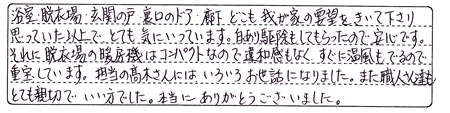 浴室 脱衣場 玄関の戸 裏口のドア 廊下 どこも我が家の要望をきいて下さり
思っていた以上で とても気にいっています。白あり駆除もしてもらったので安心です。
それに脱衣場の暖房機はコンパクトなので違和感もなく、すぐに温風もでるので
重宝しています。担当の高木さんにはいろいろお世話になりました。また職人達も
とても親切で いい方でした。本当に ありがとうございました。